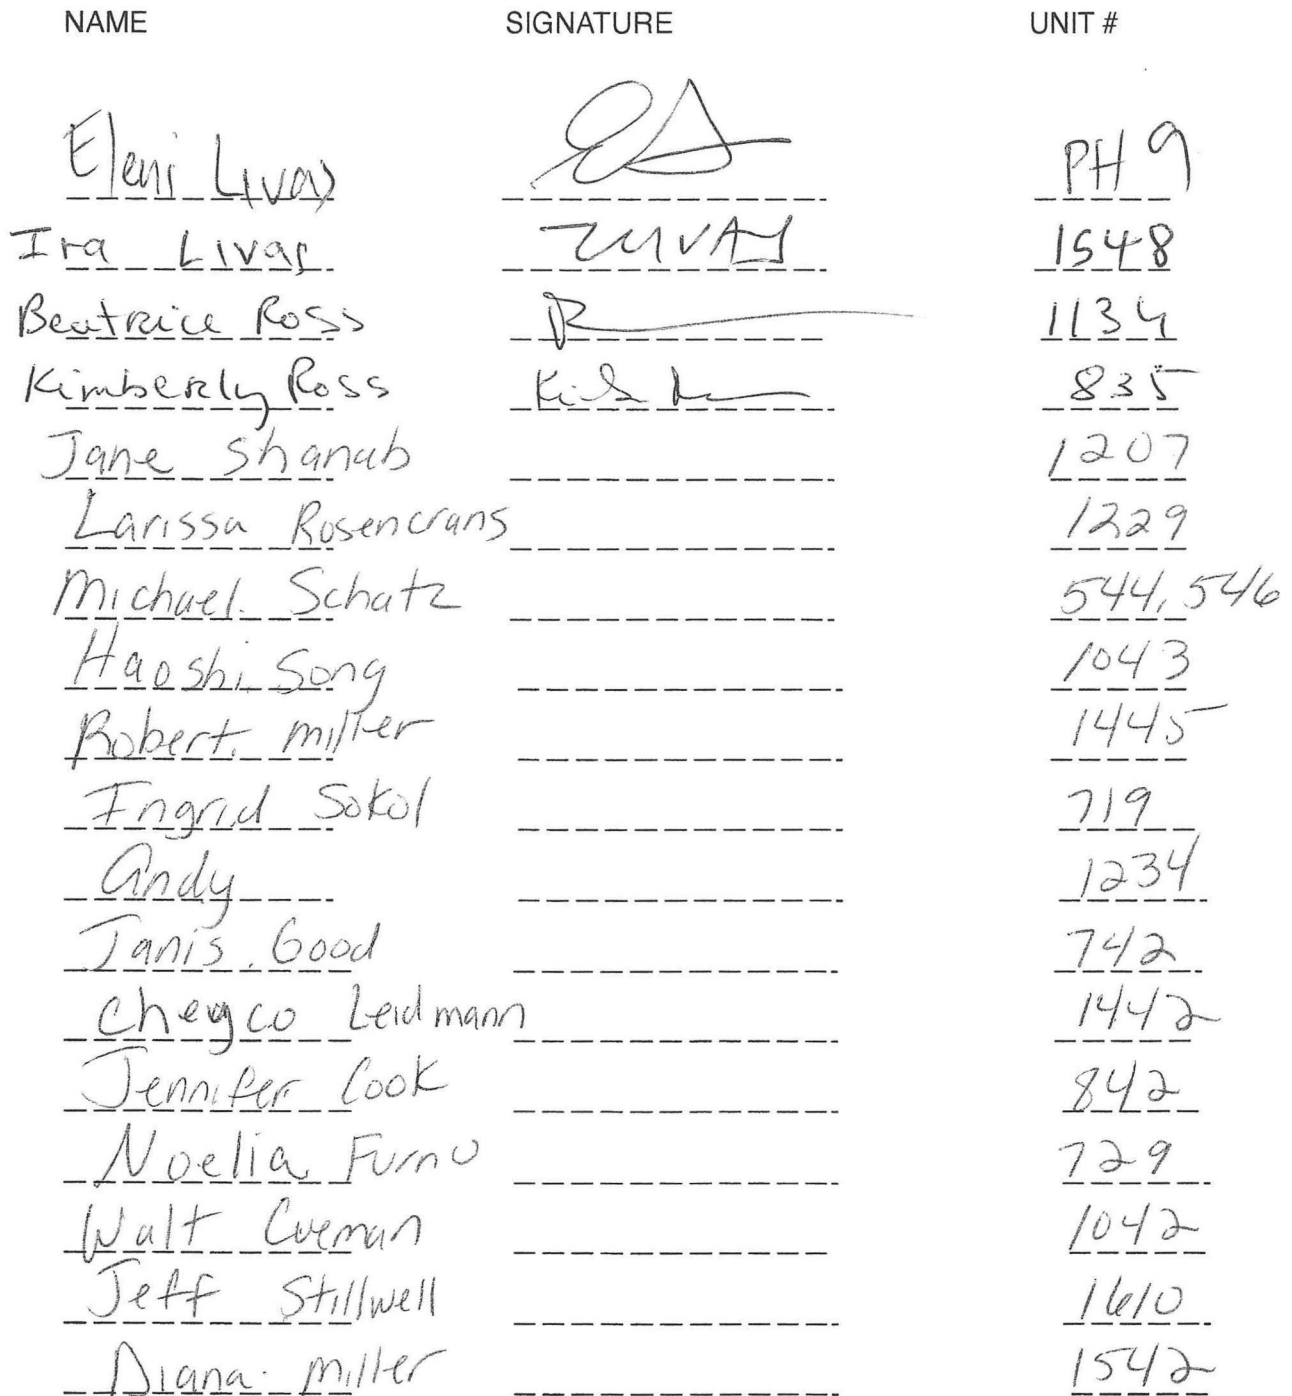 NAME SIGNATURE UNIT #
Eleni Livas PH 9
Ira Livas LIVAS 1548
Beatrice Ross 1134
Kimberly Ross 835
Jane Shanab 1207
Larissa Rosencrans 1229
Michael Schatz 544, 546
Haoshi Song 1043
Robert miller 1445
Ingrid Sokol 719
Andy 1234
Janis Good 742
Cheyco Leidmann 1442
Jennifer Cook 842
Noelia Furno 729
Walt Cueman 1042
Jeff Stillwell 1610
Diana miller 1542